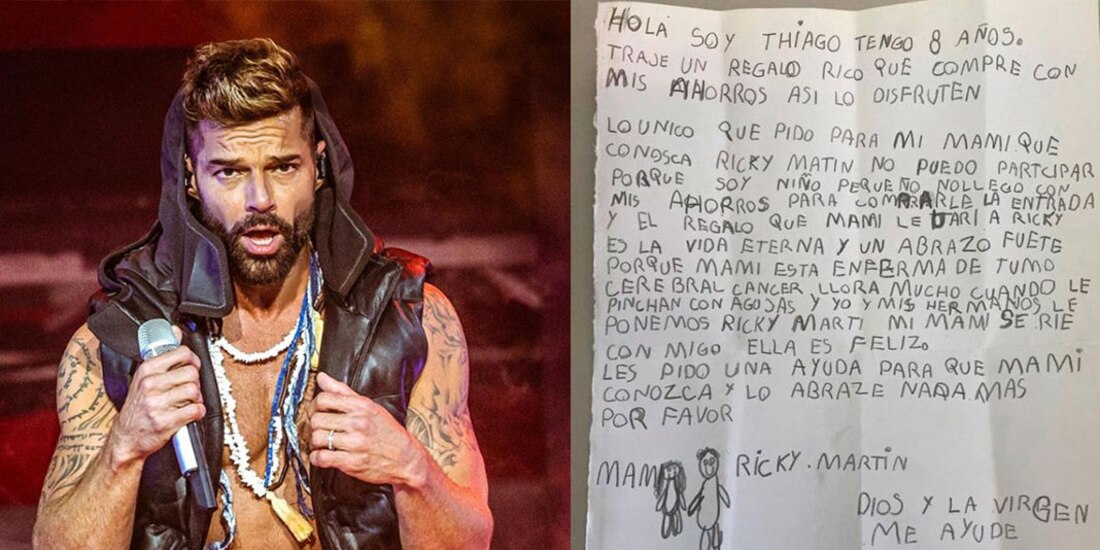 HOLA SOY THIAGO TENGO 8 AÑOS.
TRAJE UN REGALO RICO QUE COMPRE CON
MIS AHORROS ASI LO DISFRUTEN
LO UNICO QUE PIDO PARA MI MAMI QUE
CONOSCA RICKY MATIN NO PUEDO PARTCIPAR
PORQUE SOY NIÑO PEQUEÑO NOLLEGO CON
MIS AHORROS PARA COMPRARLE LA ENTRADA
Y EL REGALO QUE MAMI LE DARI A RICKY
ES LA VIDA ETERNA Y UN ABRAZO FUETE
PORQUE MAMI ESTA ENFERMA DE TUMO
CEREBRAL CANCER LLORA MUCHO CUANDO LE
PINCHAN CON AGUJAS Y YO Y MIS HERMANOS LE
PONEMOS RICKY MARTI MI MAMI SE RIE
CON MIGO ELLA ES FELIZ.
LES PIDO UNA AYUDA PARA QUE MAMI
CONOZCA Y LO ABRAZE NADA MAS
POR FAVOR
MAMI RICKY.MARTIN
DIOS Y LA VIRGEN
ME AYUDE